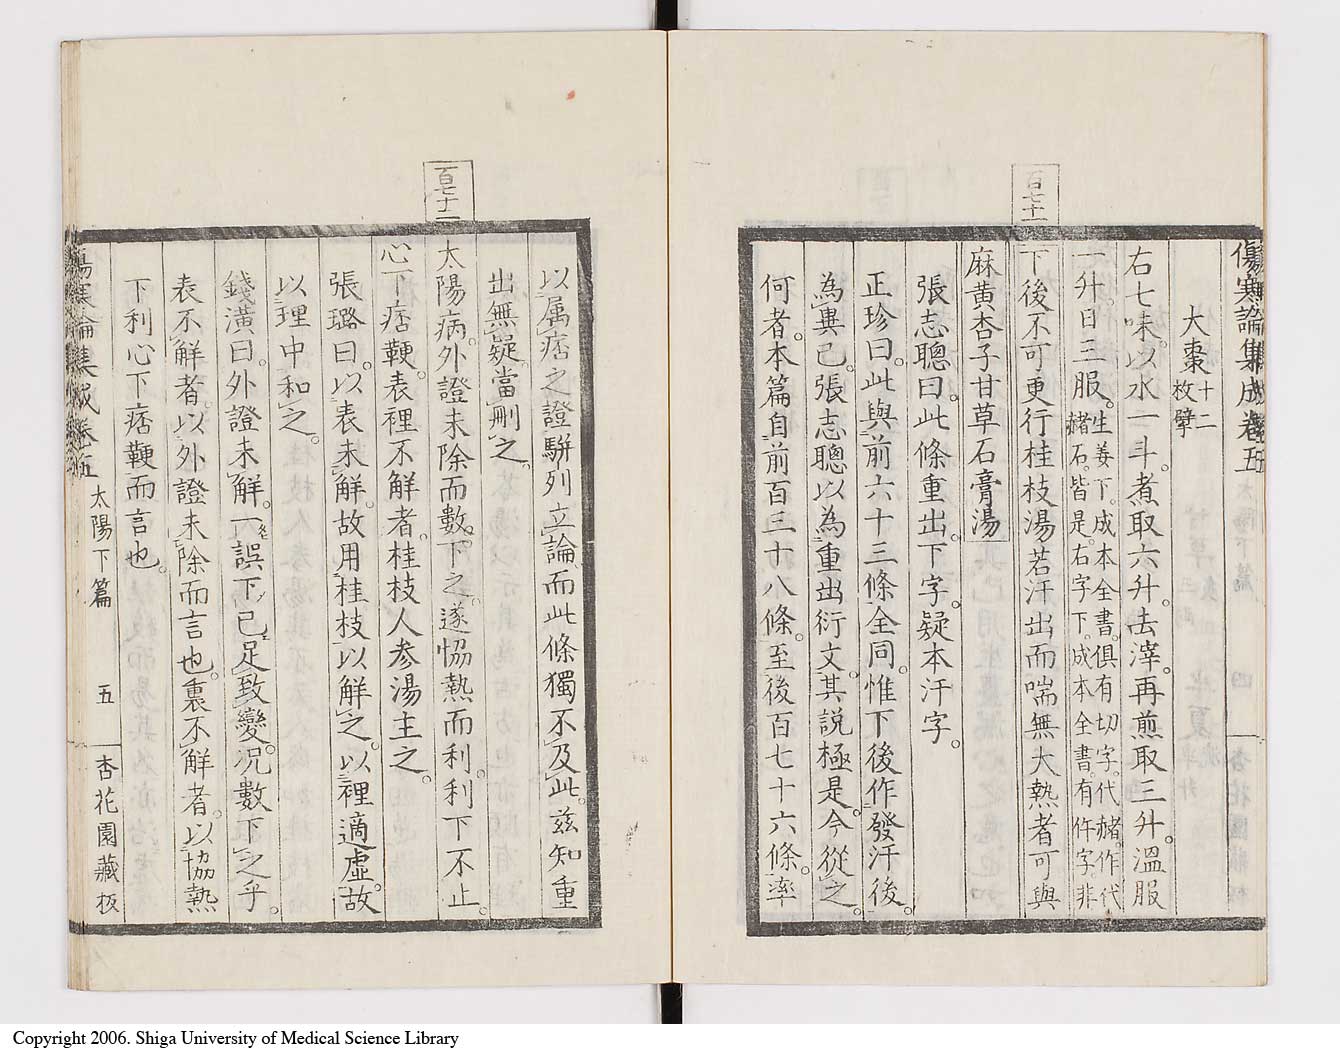 傷寒論集成卷五
大棗十二枚擘
右七味。以水一斗。煮取六升。去滓。再煎取三升。溫服
一升。日三服。生姜下。成本全書。俱有切字。代赭。作代赭石。皆是。右字下。成本全書。有件字。非
百七十一
下後不可更行桂枝湯若汗出而喘無大熱者可與
麻黃杏子甘草石膏湯
張志聰曰。此條重出。下字。疑本汗字。
正珍曰。此與前六十三條全同。惟下後作發汗後。
為異已。張志聰以為重出衍文。其說極是。今從之。
何者。本篇自前百三十八條。至後百七十六條。率
以属痞之證駢列立論。而此條獨不及此。茲知重
出無疑。當刪之。
百七十二
太陽病。外證未除而數下之。遂恊熱而利。利下不止。
心下痞鞕。表裡不解者。桂枝人参湯主之。
張璐曰。以表未解。故用桂枝以解之。以裡適虛。故
以理中和之。
錢潢曰。外證未解。一誤下。已足致變。况數下之乎。
表不解者。以外證未除而言也。裏不解者。以協熱
下利心下痞鞕而言也。
傷寒論集成卷五
太陽下篇
五
杏花園藏板